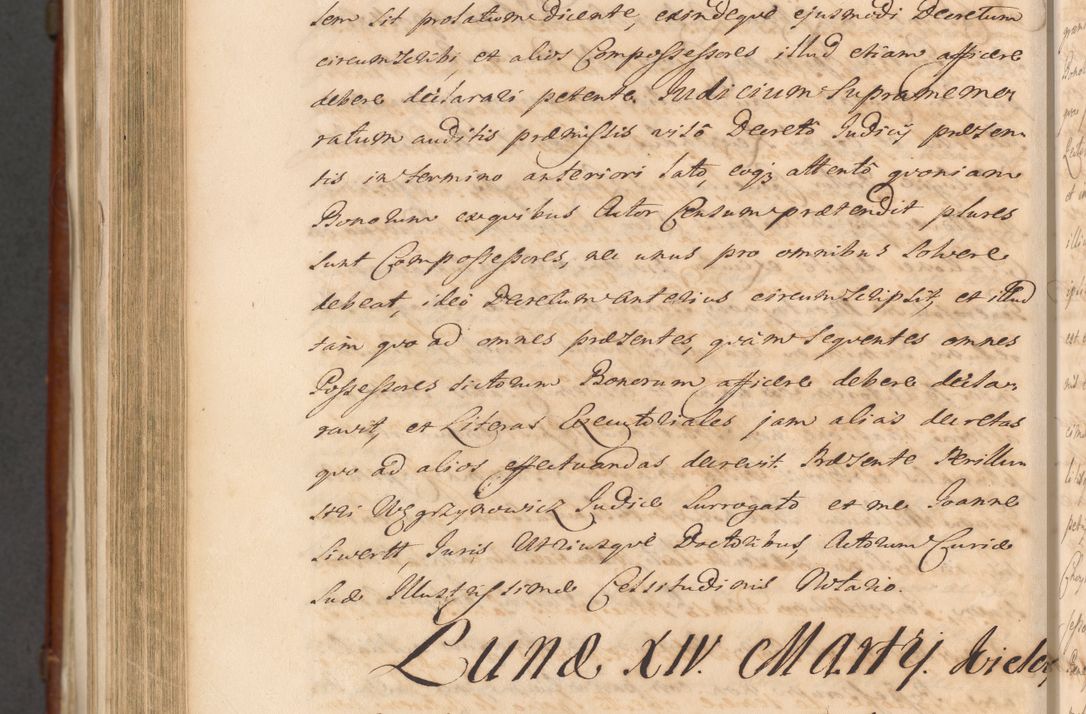 tem sit prolatum dicente, exindeque ejusmodi Decretum
circumscribi, et alios Compossessores illud etiam afficere
debere declarari petente. Judicium Supramemo,
ratum auditis præmissis visô Decretô Judicij præsen,
tis in termino anteriori latô, eoq; attentô quoniam
Bonorum ex quibus Actor Censum prætendit plures
sunt Compossessores, nec unus pro omnibus solvere
debeat, ideó Decretum anterius circumscripsit, et illud
tám quo ad omnes præsentes, quám sequentes omnes
Possessores dictorum Bonorum afficere debere decla,
ravit, et Literas Executoriales jam alias decretas
quo ad alios effectuandas decrevit. Præsente Perillu
stri Węgrzynowicz Judice Surrogatô et me Joanne
Siwertt, Juris Utriusque Doctoribus Actorum Curiæ
Suæ Illustrissimæ Celsitudinis Notario.
Lunæ XIV. Martij.